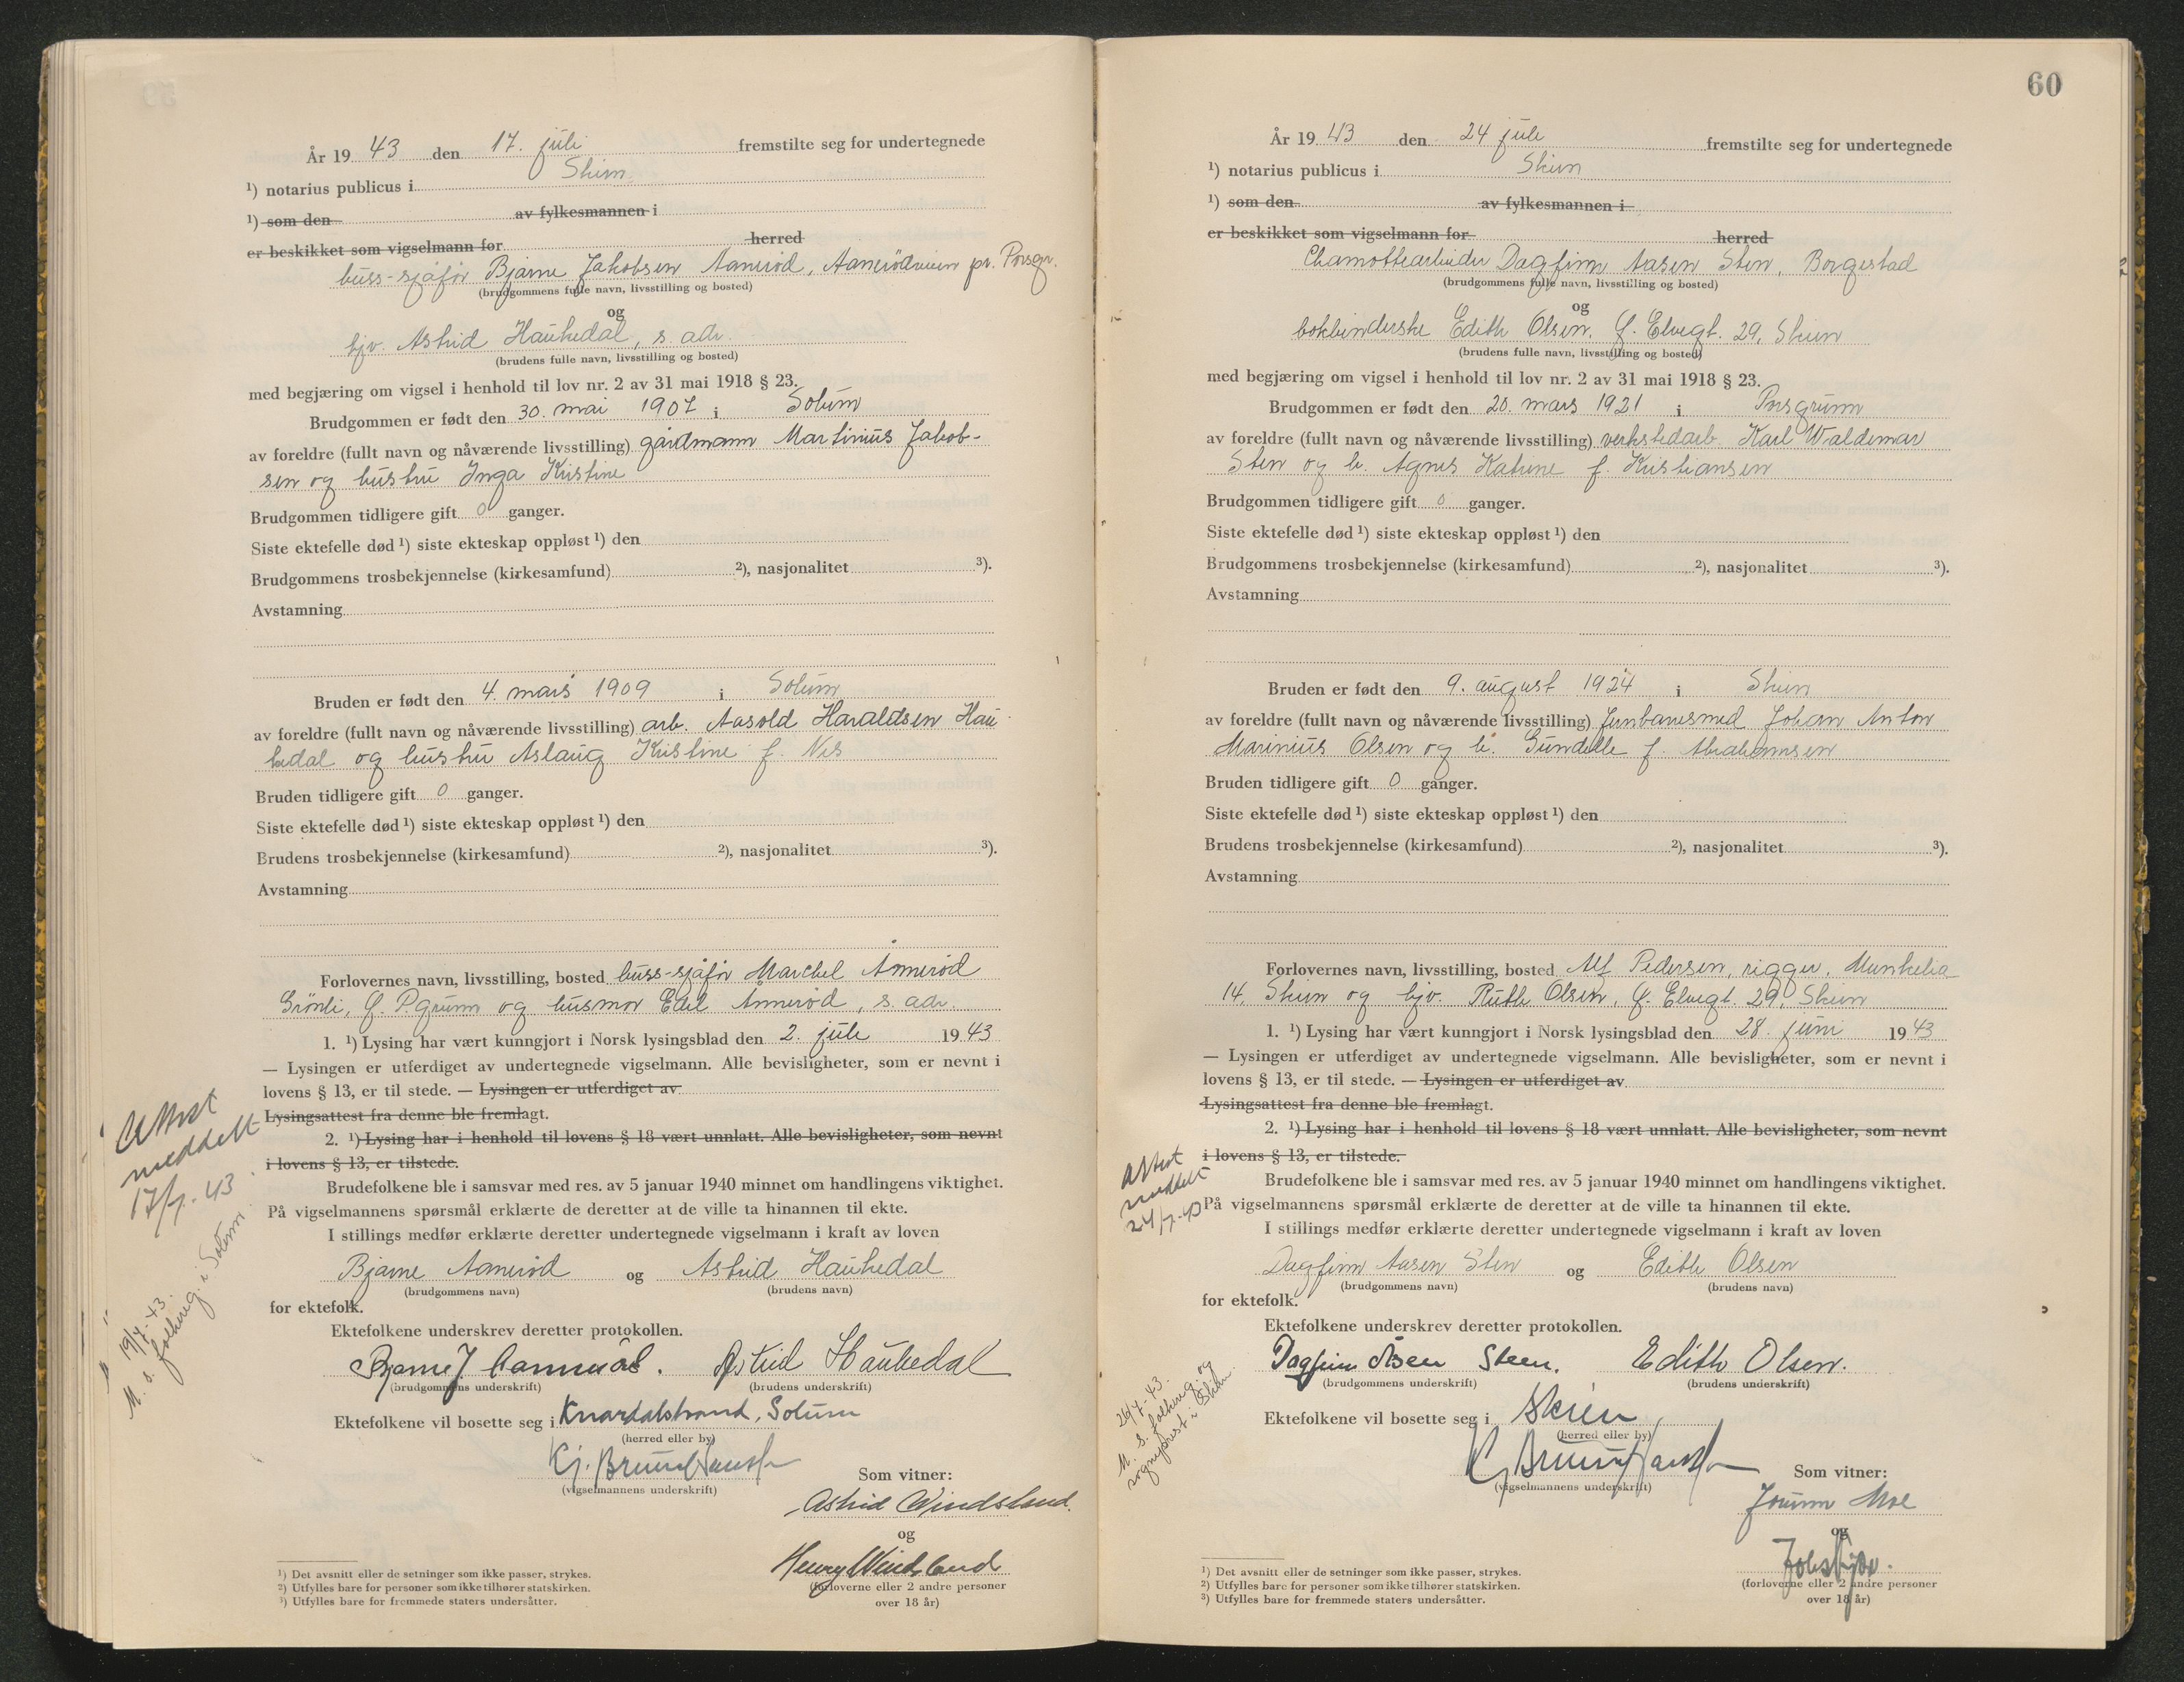 År 19 43 den 17. juli fremstilte seg for undertegnede
¹) notarius publicus i Skien
¹) som den av fylkesmannen i
er beskikket som vigselmann for herred
buss-sjåfør Bjarne Jakobsen Aamerød, Aamerødveien pr. Porsgr.
(brudgommens fulle navn, livsstilling og bosted)
og
hjv. Astrid Haukedal, s. adr.
(brudens fulle navn, livsstilling og bosted)
med begjæring om vigsel i henhold til lov nr. 2 av 31 mai 1918 § 23.
Brudgommen er født den 30. mai 1907 i Solum
av foreldre (fullt navn og nåværende livsstilling) gårdmann Martinius Jakob-
sen og hustru Inga Kristine
Brudgommen tidligere gift 0 ganger.
Siste ektefelle død ¹) siste ekteskap oppløst ¹) den
Brudgommens trosbekjennelse (kirkesamfund) ²), nasjonalitet ³).
Avstamning
Bruden er født den 4. mars 1909 i Solum
av foreldre (fullt navn og nåværende livsstilling) arb. Aasold Haraldsen Hau-
kedal og hustru Aslaug Kristine f. Nes
Bruden tidligere gift 0 ganger.
Siste ektefelle død ¹) siste ekteskap oppløst ¹) den
Brudens trosbekjennelse (kirkesamfund) ²), nasjonalitet ³).
Avstamning
Forlovernes navn, livsstilling, bosted buss-sjåfør Amerød
Grønli, P.grunn og husmor Edel Åmerød, s. adr.
1. ¹) Lysing har vært kunngjort i Norsk lysingsblad den 2. juli 1943
— Lysingen er utferdiget av undertegnede vigselmann. Alle bevisligheter, som er nevnt i
lovens § 13, er til stede. — Lysingen er utferdiget av
Lysingsattest fra denne ble fremlagt.
2. ¹) Lysing har i henhold til lovens § 18 vært unnlatt. Alle bevisligheter, som nevnt
i lovens § 13, er tilstede.
Attest
meddelt
17/7-43
Brudefolkene ble i samsvar med res. av 5 januar 1940 minnet om handlingens viktighet.
På vigselmannens spørsmål erklærte de deretter at de ville ta hinannen til ekte.
I stillings medfør erklærte deretter undertegnede vigselmann i kraft av loven
Bjarne Aamerød og Astrid Haukedal
(brudgommens navn) (brudens navn)
for ektefolk.
19/7-43.
M. s. folkereg. i Solum
Ektefolkene underskrev deretter protokollen.
Bjarne J. Aamerød. Astrid Haukedal
(brudgommens underskrift) (brudens underskrift)
Ektefolkene vil bosette seg i Knardalstrand, Solum
(herred eller by)
Kj. Bruun Hansen
(vigselmannens underskrift)
Som vitner:
Astrid Windsland.
og
Henry Windsland
(forloverne eller 2 andre personer
over 18 år)
¹) Det avsnitt eller de setninger som ikke passer, strykes.
²) Utfylles bare for personer som ikke tilhører statskirken.
³) Utfylles bare for fremmede staters undersåtter.
60
År 19 43 den 24 juli fremstilte seg for undertegnede
¹) notarius publicus i Skien
¹) som den av fylkesmannen i
er beskikket som vigselmann for herred
Chamottearbeider Dagfinn Aasen Sten, Borgestad
(brudgommens fulle navn, livsstilling og bosted)
og
bokbinderske Edith Olsen, G. Elvegt. 29, Skien
(brudens fulle navn, livsstilling og bosted)
med begjæring om vigsel i henhold til lov nr. 2 av 31 mai 1918 § 23.
Brudgommen er født den 20. mars 1921 i Porsgrunn
av foreldre (fullt navn og nåværende livsstilling) verkstedarb. Karl Waldemar
Sten og h. Agnes Katrine f. Kristiansen
Brudgommen tidligere gift 0 ganger.
Siste ektefelle død ¹) siste ekteskap oppløst ¹) den
Brudgommens trosbekjennelse (kirkesamfund) ²), nasjonalitet ³).
Avstamning
Bruden er født den 9. august 1924 i Skien
av foreldre (fullt navn og nåværende livsstilling) Jernbanesmed Johan Anton
Marinius Olsen og h. Gundelle f. Abrahamsen
Bruden tidligere gift 0 ganger.
Siste ektefelle død ¹) siste ekteskap oppløst ¹) den
Brudens trosbekjennelse (kirkesamfund) ²), nasjonalitet ³).
Avstamning
Forlovernes navn, livsstilling, bosted Alf Pedersen, rigger, Munkelia
14, Skien og hjv. Ruth Olsen, G. Elvegt. 29, Skien
1. ¹) Lysing har vært kunngjort i Norsk lysingsblad den 28. juni 1943
— Lysingen er utferdiget av undertegnede vigselmann. Alle bevisligheter, som er nevnt i
lovens § 13, er til stede. — Lysingen er utferdiget av
Lysingsattest fra denne ble fremlagt.
2. ¹) Lysing har i henhold til lovens § 18 vært unnlatt. Alle bevisligheter, som nevnt
i lovens § 13, er tilstede.
Attest
meddelt
24/7-43
Brudefolkene ble i samsvar med res. av 5 januar 1940 minnet om handlingens viktighet.
På vigselmannens spørsmål erklærte de deretter at de ville ta hinannen til ekte.
I stillings medfør erklærte deretter undertegnede vigselmann i kraft av loven
Dagfinn Aasen Sten og Edith Olsen
(brudgommens navn) (brudens navn)
for ektefolk.
Ektefolkene underskrev deretter protokollen.
Dagfinn Åsen Steen. Edith Olsen.
(brudgommens underskrift) (brudens underskrift)
26/7-43.
M. s. folkereg. og
sogneprest i Skien
Ektefolkene vil bosette seg i Skien
(herred eller by)
Kj Bruun Hansen
(vigselmannens underskrift)
Som vitner:
Jorunn Moe
og
(forloverne eller 2 andre personer
over 18 år)
¹) Det avsnitt eller de setninger som ikke passer, strykes.
²) Utfylles bare for personer som ikke tilhører statskirken.
³) Utfylles bare for fremmede staters undersåtter.